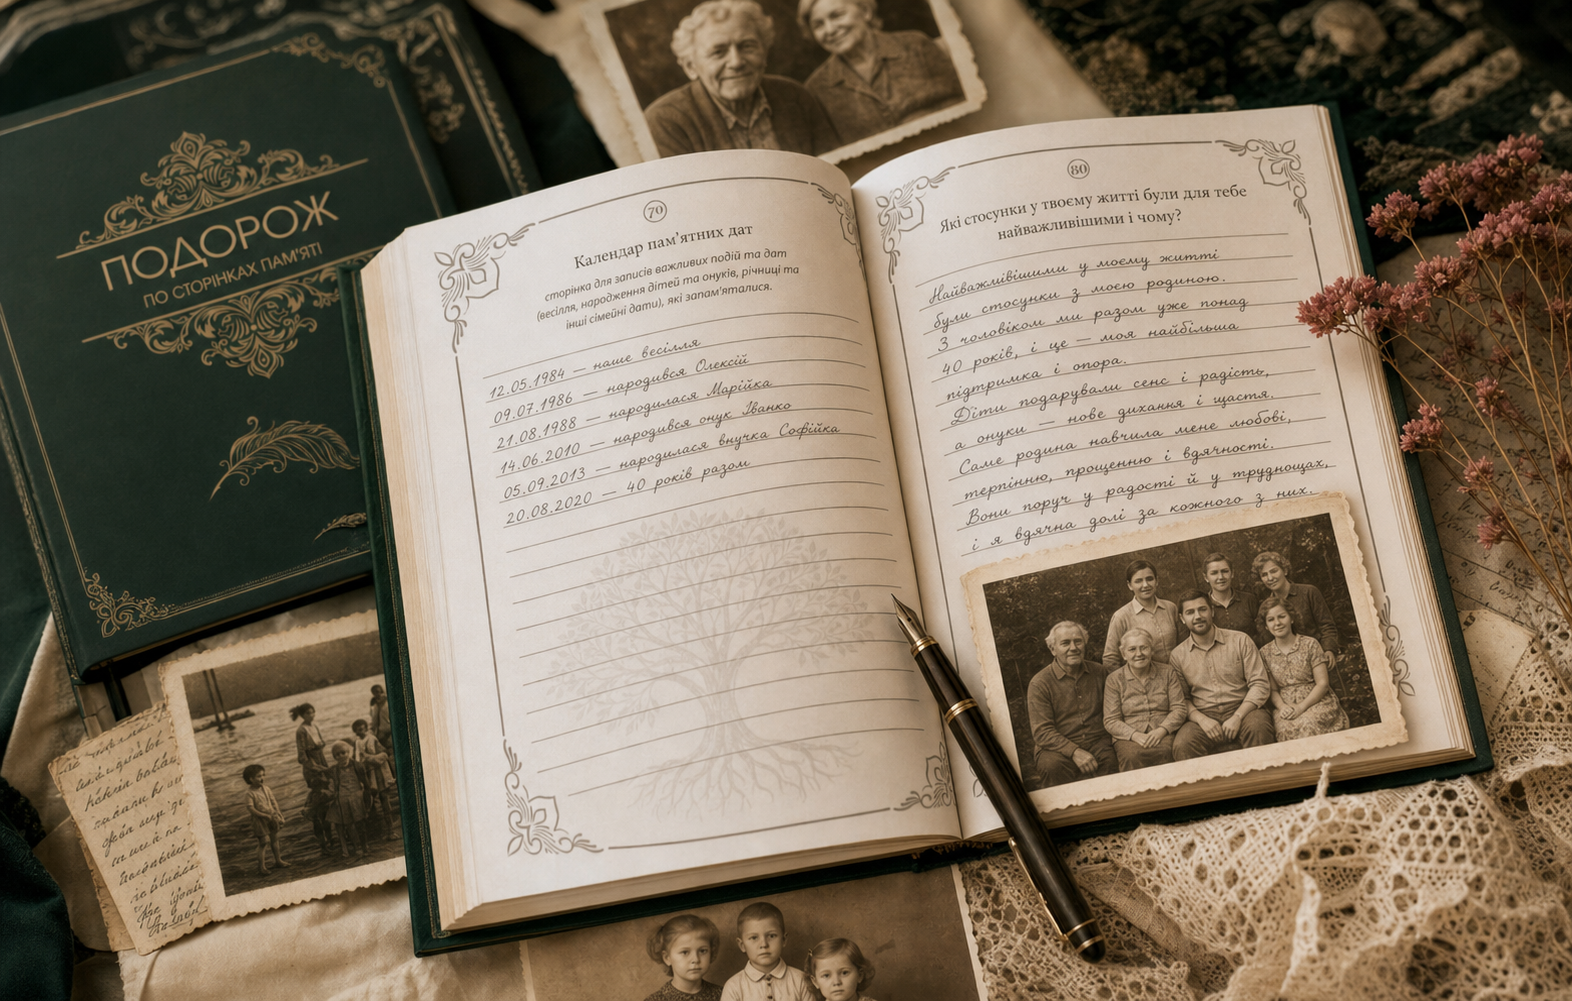 ПОДОРОЖ
ПО СТОРІНКАХ ПАМ'ЯТІ
70
Календар пам'ятних дат
сторінка для записів важливих подій та дат
(весілля, народження дітей та онуків, річниці та
інші сімейні дати), які запам'яталися.
12.05.1984 — наше весілля
09.07.1986 — народився Олексій
21.08.1988 — народилася Марійка
14.06.2010 — народився онук Іванко
05.09.2013 — народилася внучка Софійка
20.08.2020 — 40 років разом
80
Які стосунки у твоєму житті були для тебе
найважливішими і чому?
Найважливішими у моєму житті
були стосунки з моєю родиною.
З чоловіком ми разом уже понад
40 років, і це — моя найбільша
підтримка і опора.
Діти подарували сенс і радість,
а онуки — нове дихання і щастя.
Саме родина навчила мене любові,
терпінню, прощенню і вдячності.
Вони поруч у радості й у труднощах,
і я вдячна долі за кожного з них.